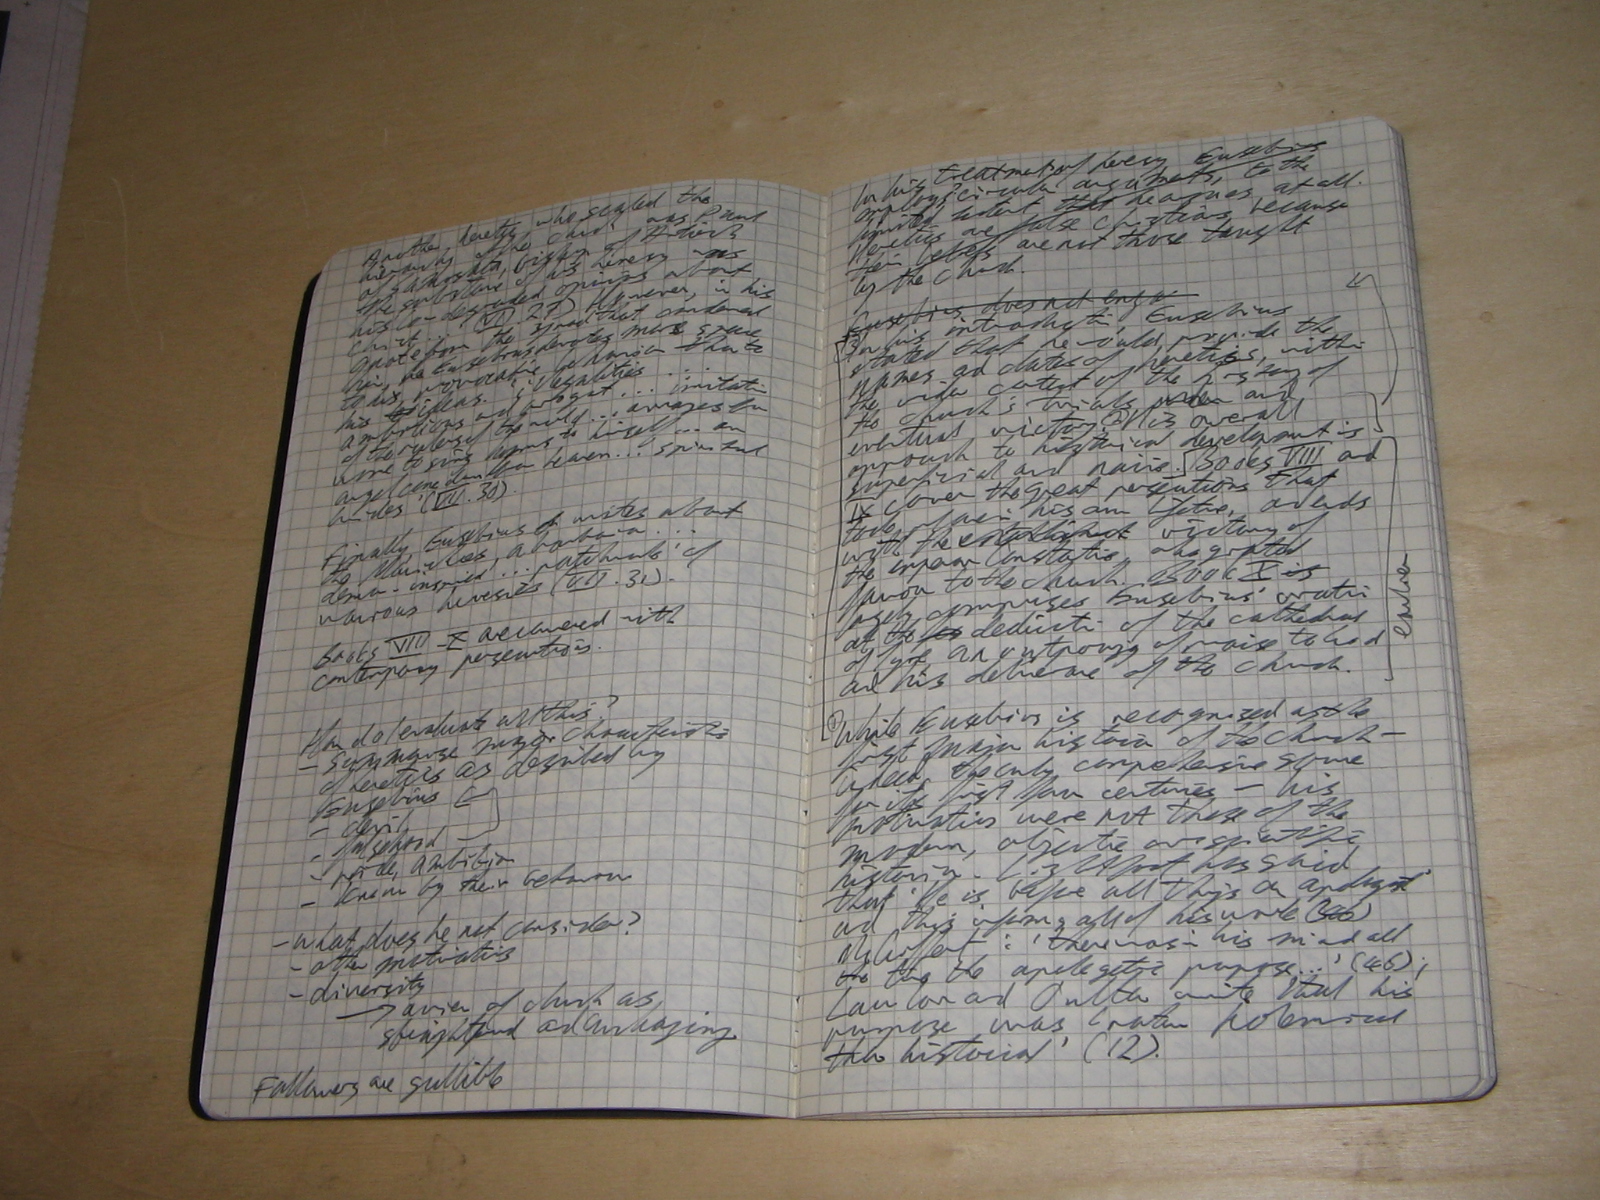 Another heretic who scaled the
hierarchy of the church was Paul
of Samosata, bishop of Antioch
the substance of his heresy was
his low-degraded opinions about
Christ... (VII.27) However, in his
quote from the synod that condemned
him, Eusebius devotes more space
to his behaviour than to
his ideas. 'illegalities...
ambitious and arrogant... imitating
of the rulers of the world... arranges for
women to sing hymns to himself... an
angel come down from heaven... spiritual
brides' (VII.30).
Finally, Eusebius writes about
the Manichees, a barbarian...
demon-inspired... patchwork' of
various heresies (VII.31).
Books VIII-X are concerned with
contemporary persecutions.
How do I evaluate all this?
- Summarise major characteristics
of heretics as described by
Eusebius
- devil
- falsehood
- pride, ambition
- known by their behaviour
- what does he not consider?
- other motivations
- diversity
→ a view of church as
straightforward and unchanging
Followers are gullible
In his treatment of heresy Eusebius
employs circular arguments, to the
limited extent that he argues at all.
Heretics are false Christians, because
their beliefs are not those taught
by the church.
Eusebius does not enga
In his introduction, Eusebius
stated that he would provide the
names and dates of heretics, within
the wider context of the history of
the church's trials and
eventual victory. His overall
approach to historical development is
superficial and naive. Books VIII and
IX cover the great persecutions that
took place in his own lifetime, and ends
with the victory of
the emperor Constantine, who granted
favour to the church. Book X is
largely comprises Eusebius' oration
at the dedication of the cathedral
of Tyre, an outpouring of praise to God
and his deliverance of the church.
earlier
While Eusebius is recognized as the
first major historian of the church -
indeed, the only comprehensive source
for its first four centuries - his
motivations were not those of the
modern, objective or scientific
historian. has said
that 'He is before all things an apologist'
and this informs all of his work (
McGiffert: 'there was in his mind all
the time the apologetic purpose...' (46);
Lawlor and Oulton write that his
purpose was 'rather polemical
than historical' (12).